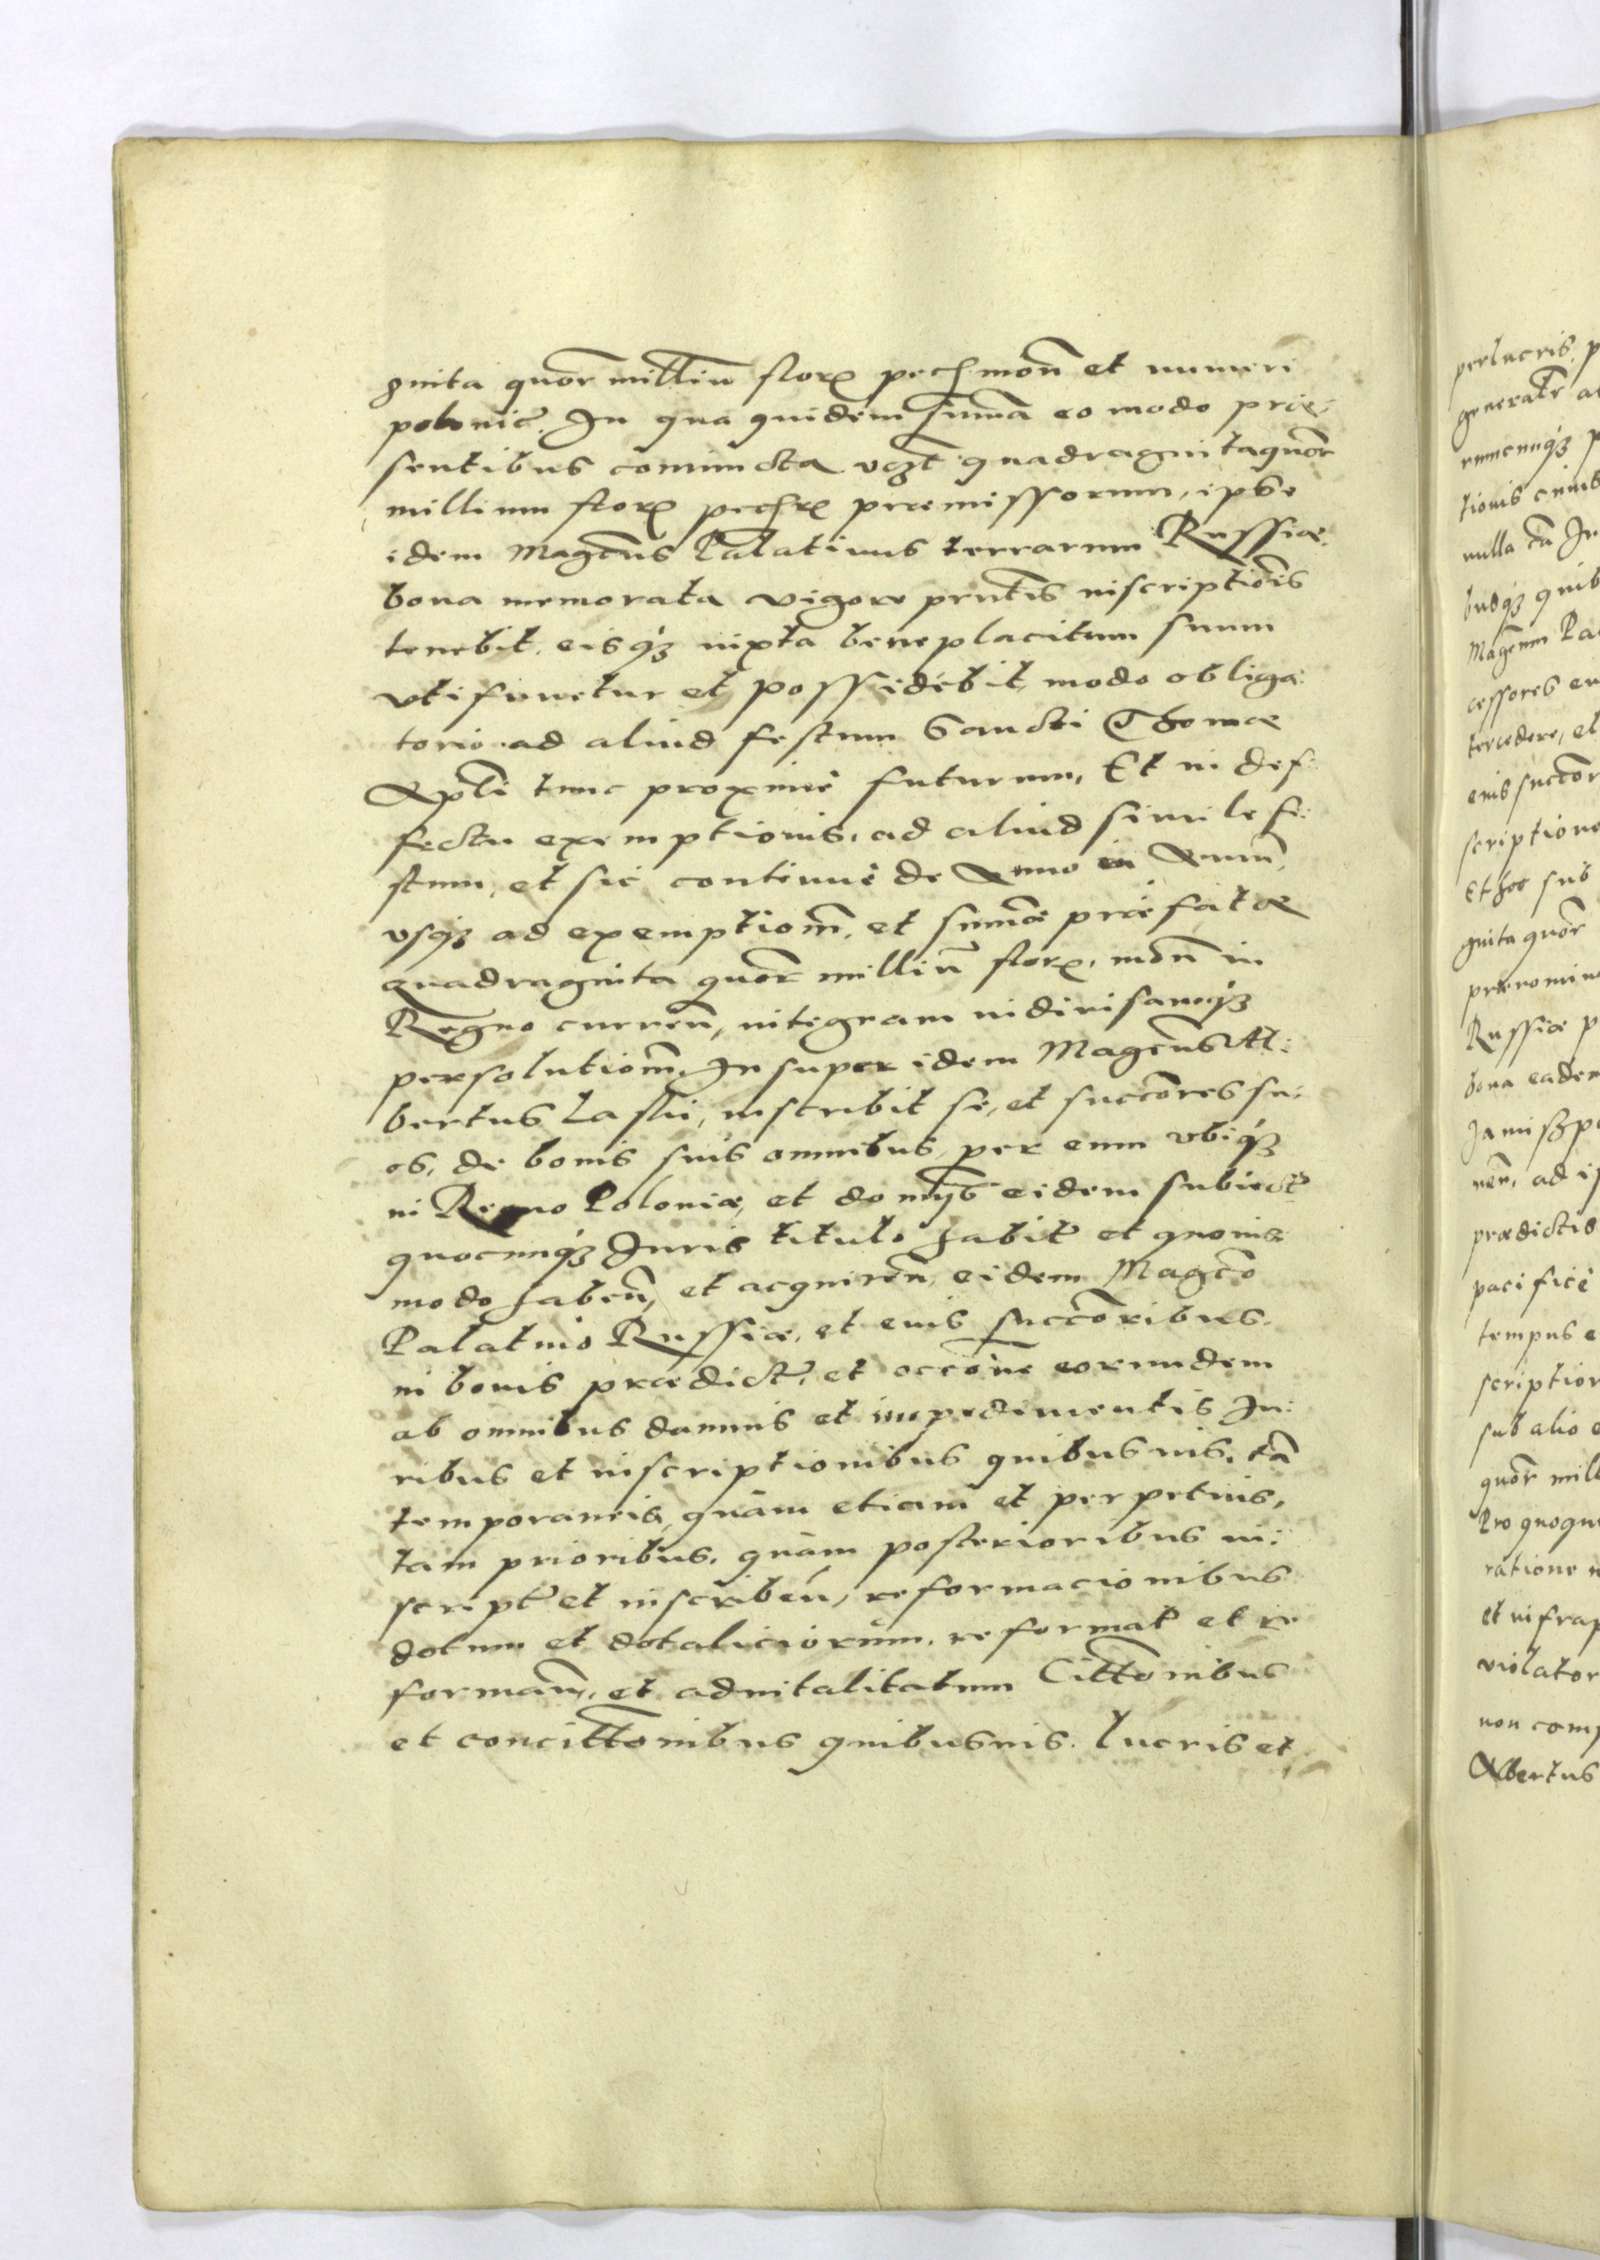 gnita quor millium florꝝ pech: mon et numeri
polonic. In qua quidem suma eo modo præ:
sentibus coniuncta vczt quadragintaquor
millium florꝝ pechrꝝ præmissorum, ipse
idem Magcus Palatinus terrarum Russiæ
bona memorata vigore pntis inscriptiois
tenebit. eisqꝫ iuxta beneplacitum suum
vti fruetur et possidebit, modo obliga:
torio ad aliud festum Sancti Thomæ
Apli tunc proximè futurum, Et in def:
fectu exemptionis, ad aliud simile fe:
stum, et sic continuè de Anno in Annu
vsqꝫ ad exemptiom, et sumæ præfatæ
quadraginta quor milliu florꝝ, mon in
Regno curren, integram indiuisamqꝫ
persolutiom. Insuper idem Magcus Al:
bertus Laski, inscribit se, et succores su:
os, de bonis suis omnibus, per eum vbiqꝫ
in Regno Poloniæ, et dominijs eidem subiect
quocunqꝫ Iuris titulo habit et quouis
modo haben, et acquiren, eidem Magco
Palatino Russiæ, et eius succoribus.
in bonis prædict, et occoine eorundem
ab omnibus damnis et impedimentis Iu:
ribus et inscriptionibus quibusuis, ta
temporaneis, quàm etiam et perpetuis,
tam prioribus, quàm posterioribus in:
script et inscriben, reformacionibus
dotum et dotaliciorum, reformat et re
forman, et aduitalitatum Cittonibus
et concittonibus quibusuis. lucris et

perlucris, p
generatr a
tionis
nulla ca Ju
busqꝫ quib
Magcum Pa
cessores eu
tercedere, et
eius succor
scriptione
Et hoc sub
ginta quor
prænomin
Russiæ p
bona eadem
nen, ad ip
prædictis
pacificè
tempus e
scription
sub alio
quor mill
Pro quoqu
ratione
et infrap
violator
non comp
Albertus